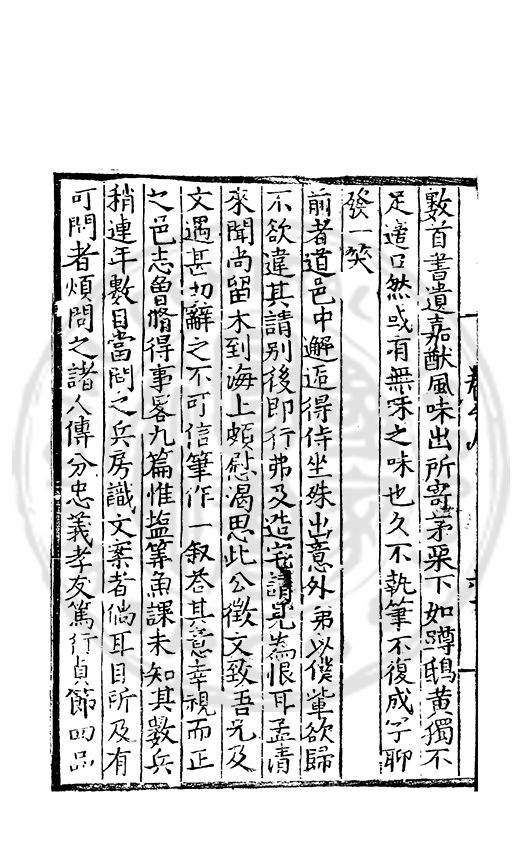 數首書遺嘉猷風味出所寄茅渠下如蹲鴟黃獨不
足適口然或有無來之味也久不執筆不復成字聊
發一笑
前者道邑中邂逅得侍坐殊出意外弟以僕輩欲歸
不欲違其請別後即行弗及造宅請見為恨耳孟清
來聞尚留木到海上頗慰渴思此公徵文致吾兄及
文遇甚切辭之不可信筆作一叙荅其意幸視而正
之邑志曾脩得事畧九篇惟盐筭魚課未知其數兵
稍連年數目當問之兵房識文案者倘耳目所及有
可問者煩問之諸人傳分忠義孝友篤行貞節四品